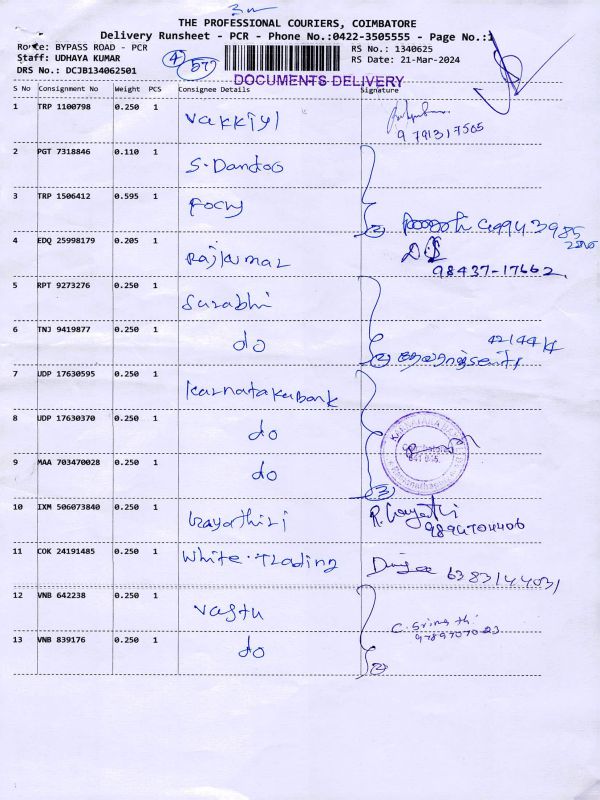 THE PROFESSIONAL COURIERS, COIMBATORE
Delivery Runsheet - PCR - Phone No.:0422-3505555 - Page No.:1
Route: BYPASS ROAD - PCR RS No.: 1340625
Staff: UDHAYA KUMAR 4 577 RS Date: 21-Mar-2024
DRS No.: DCJB134062501 DOCUMENTS DELIVERY
S No Consignment No Weight PCS Consignee Details Signature
1 TRP 1100798 0.250 1 Vakkiyl
9791317565
2 PGT 7318846 0.110 1 S. Dandoo
3 TRP 1506412 0.595 1 Focuy
2
4 EDQ 25998179 0.205 1 Rajkumar
98437-17662
5 RPT 9273276 0.250 1 Surabhi
6 TNJ 9419877 0.250 1 do 2
7 UDP 17630595 0.250 1 Karnataka bank
8 UDP 17630370 0.250 1 do
KARNATAKA BANK
Coimbatore
9 MAA 703470028 0.250 1 do
3
10 IXM 506073840 0.250 1 Gayathiri R. Gayathri
9894704406
11 COK 24191485 0.250 1 White. Trading 6383144031
12 VNB 642238 0.250 1 Vastu
C. Srimathi
13 VNB 839176 0.250 1 do
2